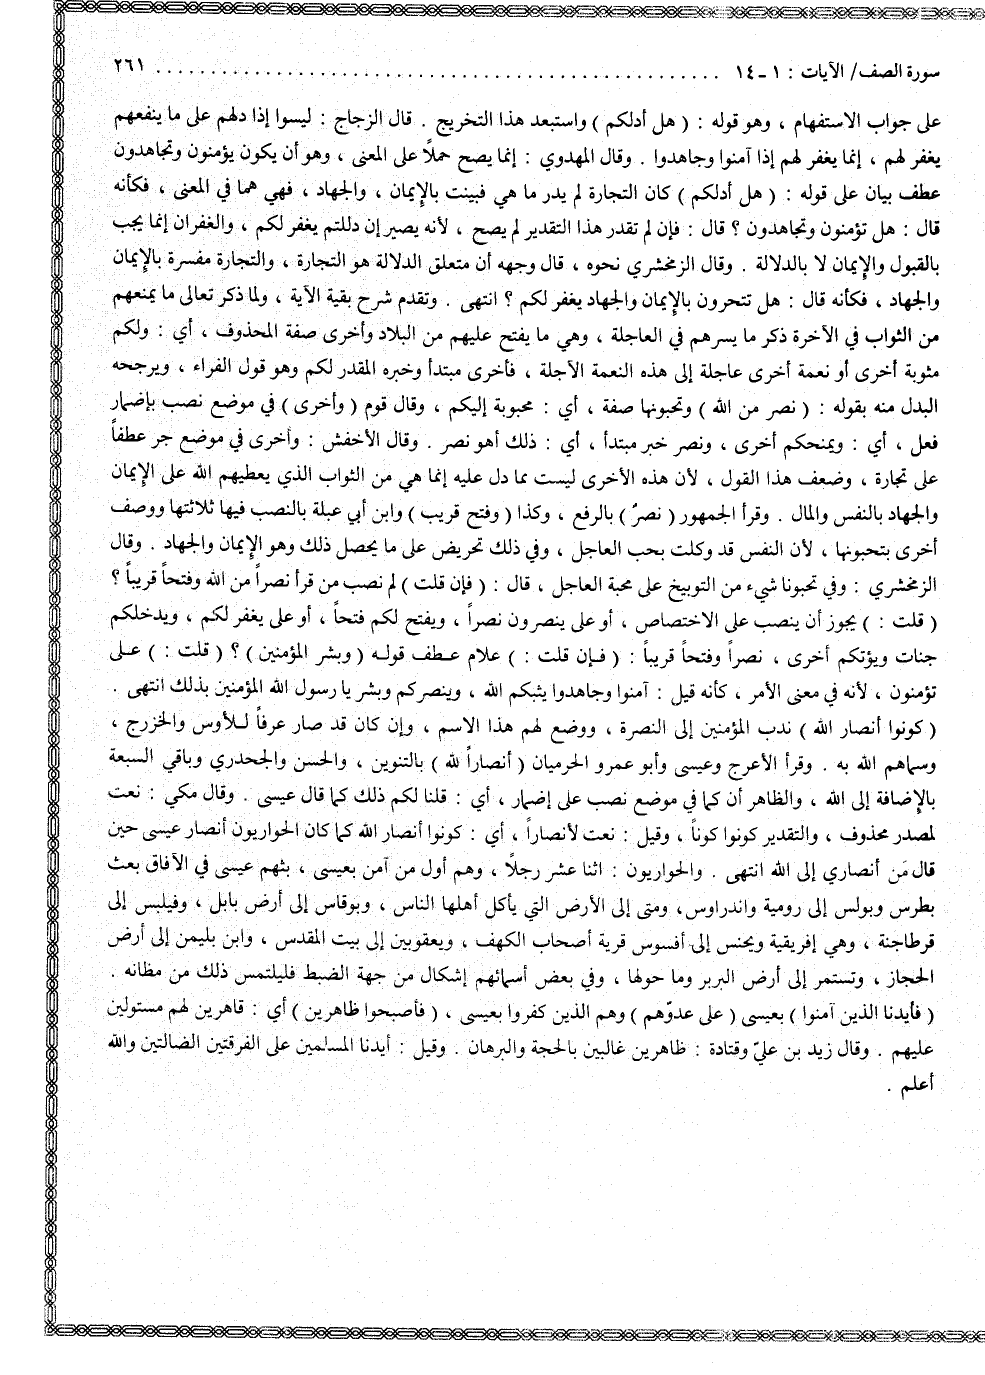 سورة الصف/ الآيات : ١ ـ ١٤ ........................................................ ٢٦١
على جواب الاستفهام ، وهو قوله : ( هل أدلكم ) واستبعد هذا التخريج . قال الزجاج : ليسوا إذا دلهم على ما ينفعهم
يغفر لهم ، إنما يغفر لهم إذا آمنوا وجاهدوا . وقال المهدوي : إنما يصح حملاً على المعنى ، وهو أن يكون يؤمنون وتجاهدون
عطف بيان على قوله : ( هل أدلكم ) كان التجارة لم يدر ما هي فبينت بالإيمان ، والجهاد ، فهي هما في المعنى ، فكأنه
قال : هل تؤمنون وتجاهدون ؟ قال : فإن لم تقدر هذا التقدير لم يصح ، لأنه يصير إن دللتم يغفر لكم ، والغفران إنما يجب
بالقبول والإيمان لا بالدلالة . وقال الزمخشري نحوه ، قال وجهه أن متعلق الدلالة هو التجارة ، والتجارة مفسرة بالإيمان
والجهاد ، فكأنه قال : هل تتحرون بالإيمان والجهاد يغفر لكم ؟ انتهى . وتقدم شرح بقية الآية ، ولما ذكر تعالى ما يمنعهم
من الثواب في الآخرة ذكر ما يسرهم في العاجلة ، وهي ما يفتح عليهم من البلاد وأخرى صفة المحذوف ، أي : ولكم
مثوبة أخرى أو نعمة أخرى عاجلة إلى هذه النعمة الآجلة ، فأخرى مبتدأ وخبره المقدر لكم وهو قول الفراء ، ويرجحه
البدل منه بقوله : ( نصر من الله ) وتحبونها صفة ، أي : محبوبة إليكم ، وقال قوم ( وأخرى ) في موضع نصب بإضمار
فعل ، أي : ويمنحكم أخرى ، ونصر خبر مبتدأ ، أي : ذلك أهو نصر . وقال الأخفش : وأخرى في موضع جر عطفاً
على تجارة ، وضعف هذا القول ، لأن هذه الأخرى ليست مما دل عليه إنما هي من الثواب الذي يعطيهم الله على الإيمان
والجهاد بالنفس والمال . وقرأ الجمهور ( نصرٌ ) بالرفع ، وكذا ( وفتح قريب ) وابن أبي عبلة بالنصب فيها ثلاثتها ووصف
أخرى بتحبونها ، لأن النفس قد وكلت بحب العاجل ، وفي ذلك تحريض على ما يحصل ذلك وهو الإيمان والجهاد . وقال
الزمخشري : وفي تحبونا شيء من التوبيخ على محبة العاجل ، قال : ( فإن قلت ) لم نصب من قرأ نصراً من الله وفتحاً قريباً ؟
( قلت : ) يجوز أن ينصب على الاختصاص ، أو على ينصرون نصراً ، ويفتح لكم فتحاً ، أو على يغفر لكم ، ويدخلكم
جنات ويؤتكم أخرى ، نصراً وفتحاً قريباً : ( فإن قلت : ) علام عطف قوله ( وبشر المؤمنين ) ؟ ( قلت : ) على
تؤمنون ، لأنه في معنى الأمر ، كأنه قيل : آمنوا وجاهدوا يثبكم الله ، وينصركم وبشر يا رسول الله المؤمنين بذلك انتهى .
( كونوا أنصار الله ) ندب المؤمنين إلى النصرة ، ووضع لهم هذا الاسم ، وإن كان قد صار عرفاً للأوس والخزرج ،
وسماهم الله به . وقرأ الأعرج وعيسى وأبو عمرو الحرميان ( أنصاراً لله ) بالتنوين ، والحسن والجحدري وباقي السبعة
بالإضافة إلى الله ، والظاهر أن كما في موضع نصب على إضمار ، أي : قلنا لكم ذلك كما قال عيسى . وقال مكي : نعت
لمصدر محذوف ، والتقدير كونوا كوناً ، وقيل : نعت لأنصاراً ، أي : كونوا أنصار الله كما كان الحواريون أنصار عيسى حين
قال مَن أنصاري إلى الله انتهى . والحواريون : اثنا عشر رجلًا ، وهم أول من آمن بعيسى ، بثهم عيسى في الآفاق بعث
بطرس وبولس إلى رومية واندراوس، ومتى إلى الأرض التي يأكل أهلها الناس ، وبوقاس إلى أرض بابل ، وفيلبس إلى
قرطاجنة ، وهي إفريقية ويحنس إلى أفسوس قرية أصحاب الكهف ، ويعقوبين إلى بيت المقدس ، وابن بليمن إلى أرض
الحجاز ، وتستمر إلى أرض البربر وما حولها ، وفي بعض أسمائهم إشكال من جهة الضبط فليلتمس ذلك من مظانه .
( فأيدنا الذين آمنوا ) بعيسى ( على عدوّهم ) وهم الذين كفروا بعيسى ، ( فأصبحوا ظاهرين ) أي : قاهرين لهم مستولين
عليهم . وقال زيد بن عليّ وقتادة : ظاهرين غالبين بالحجة والبرهان . وقيل : أيدنا المسلمين على الفرقتين الضالتين والله
أعلم .